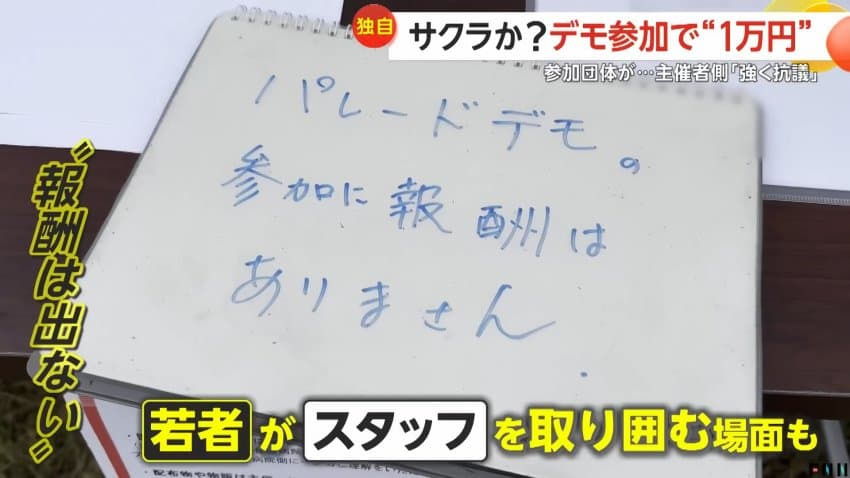 独自
サクラか？デモ参加で“1万円”
参加団体が…主催者側「強く抗議」
パレードデモの
参加に報酬は
ありません.
〝報酬は出ない〟
若者がスタッフを取り囲む場面も
FNN